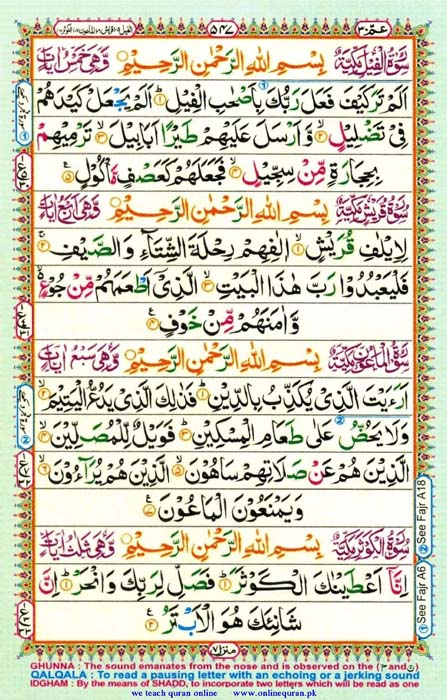 عمّ ٣٠ ٥٤٧
سُوْرَةُ الْفِيْلِ مَكِّيَّةٌ بِسْمِ اللهِ الرَّحْمٰنِ الرَّحِيْمِ وَّهِيَ خَمْسُ اٰيَاتٍ
اَلَمْ تَرَ كَيْفَ فَعَلَ رَبُّكَ بِاَصْحٰبِ الْفِيْلِ ۝١ اَلَمْ يَجْعَلْ كَيْدَهُمْ
فِيْ تَضْلِيْلٍ ۝٢ وَّاَرْسَلَ عَلَيْهِمْ طَيْرًا اَبَابِيْلَ ۝٣ تَرْمِيْهِمْ
بِحِجَارَةٍ مِّنْ سِجِّيْلٍ ۝٤ فَجَعَلَهُمْ كَعَصْفٍ مَّاْكُوْلٍ ۝٥
سُوْرَةُ قُرَيْشٍ مَكِّيَّةٌ بِسْمِ اللهِ الرَّحْمٰنِ الرَّحِيْمِ وَّهِيَ اَرْبَعُ اٰيَاتٍ
لِاِيْلٰفِ قُرَيْشٍ ۝١ اٖلٰفِهِمْ رِحْلَةَ الشِّتَآءِ وَالصَّيْفِ ۝٢
فَلْيَعْبُدُوْا رَبَّ هٰذَا الْبَيْتِ ۝٣ الَّذِيْٓ اَطْعَمَهُمْ مِّنْ جُوْعٍ
وَّاٰمَنَهُمْ مِّنْ خَوْفٍ ۝٤
سُوْرَةُ الْمَاعُوْنِ مَكِّيَّةٌ بِسْمِ اللهِ الرَّحْمٰنِ الرَّحِيْمِ وَّهِيَ سَبْعُ اٰيَاتٍ
اَرَءَيْتَ الَّذِيْ يُكَذِّبُ بِالدِّيْنِ ۝١ فَذٰلِكَ الَّذِيْ يَدُعُّ الْيَتِيْمَ ۝٢
وَلَا يَحُضُّ عَلٰى طَعَامِ الْمِسْكِيْنِ ۝٣ فَوَيْلٌ لِّلْمُصَلِّيْنَ ۝٤
الَّذِيْنَ هُمْ عَنْ صَلَاتِهِمْ سَاهُوْنَ ۝٥ الَّذِيْنَ هُمْ يُرَآءُوْنَ ۝٦
وَيَمْنَعُوْنَ الْمَاعُوْنَ ۝٧
سُوْرَةُ الْكَوْثَرِ مَكِّيَّةٌ بِسْمِ اللهِ الرَّحْمٰنِ الرَّحِيْمِ وَّهِيَ ثَلٰثُ اٰيَاتٍ
اِنَّآ اَعْطَيْنٰكَ الْكَوْثَرَ ۝١ فَصَلِّ لِرَبِّكَ وَانْحَرْ ۝٢ اِنَّ
شَانِئَكَ هُوَ الْاَبْتَرُ ۝٣
② See Fajr A18
① See Fajr A6
منزل ٧
GHUNNA : The sound emanates from the nose and is observed on the (ن and م)
QALQALA : To read a pausing letter with an echoing or a jerking sound
IDGHAM : By the means of SHADD, to incorporate two letters which will be read as one
we teach quran online www.onlinequran.pk